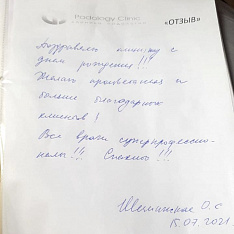 Podology Clinic
«ОТЗЫВ»
Поздравляем клинику с
днем рождения!!!
Желаем процветания и
больше благодарных
клиентов!
Все врачи суперпрофессио-
налы!!! Спасибо!!!
О.С
15.07.2021